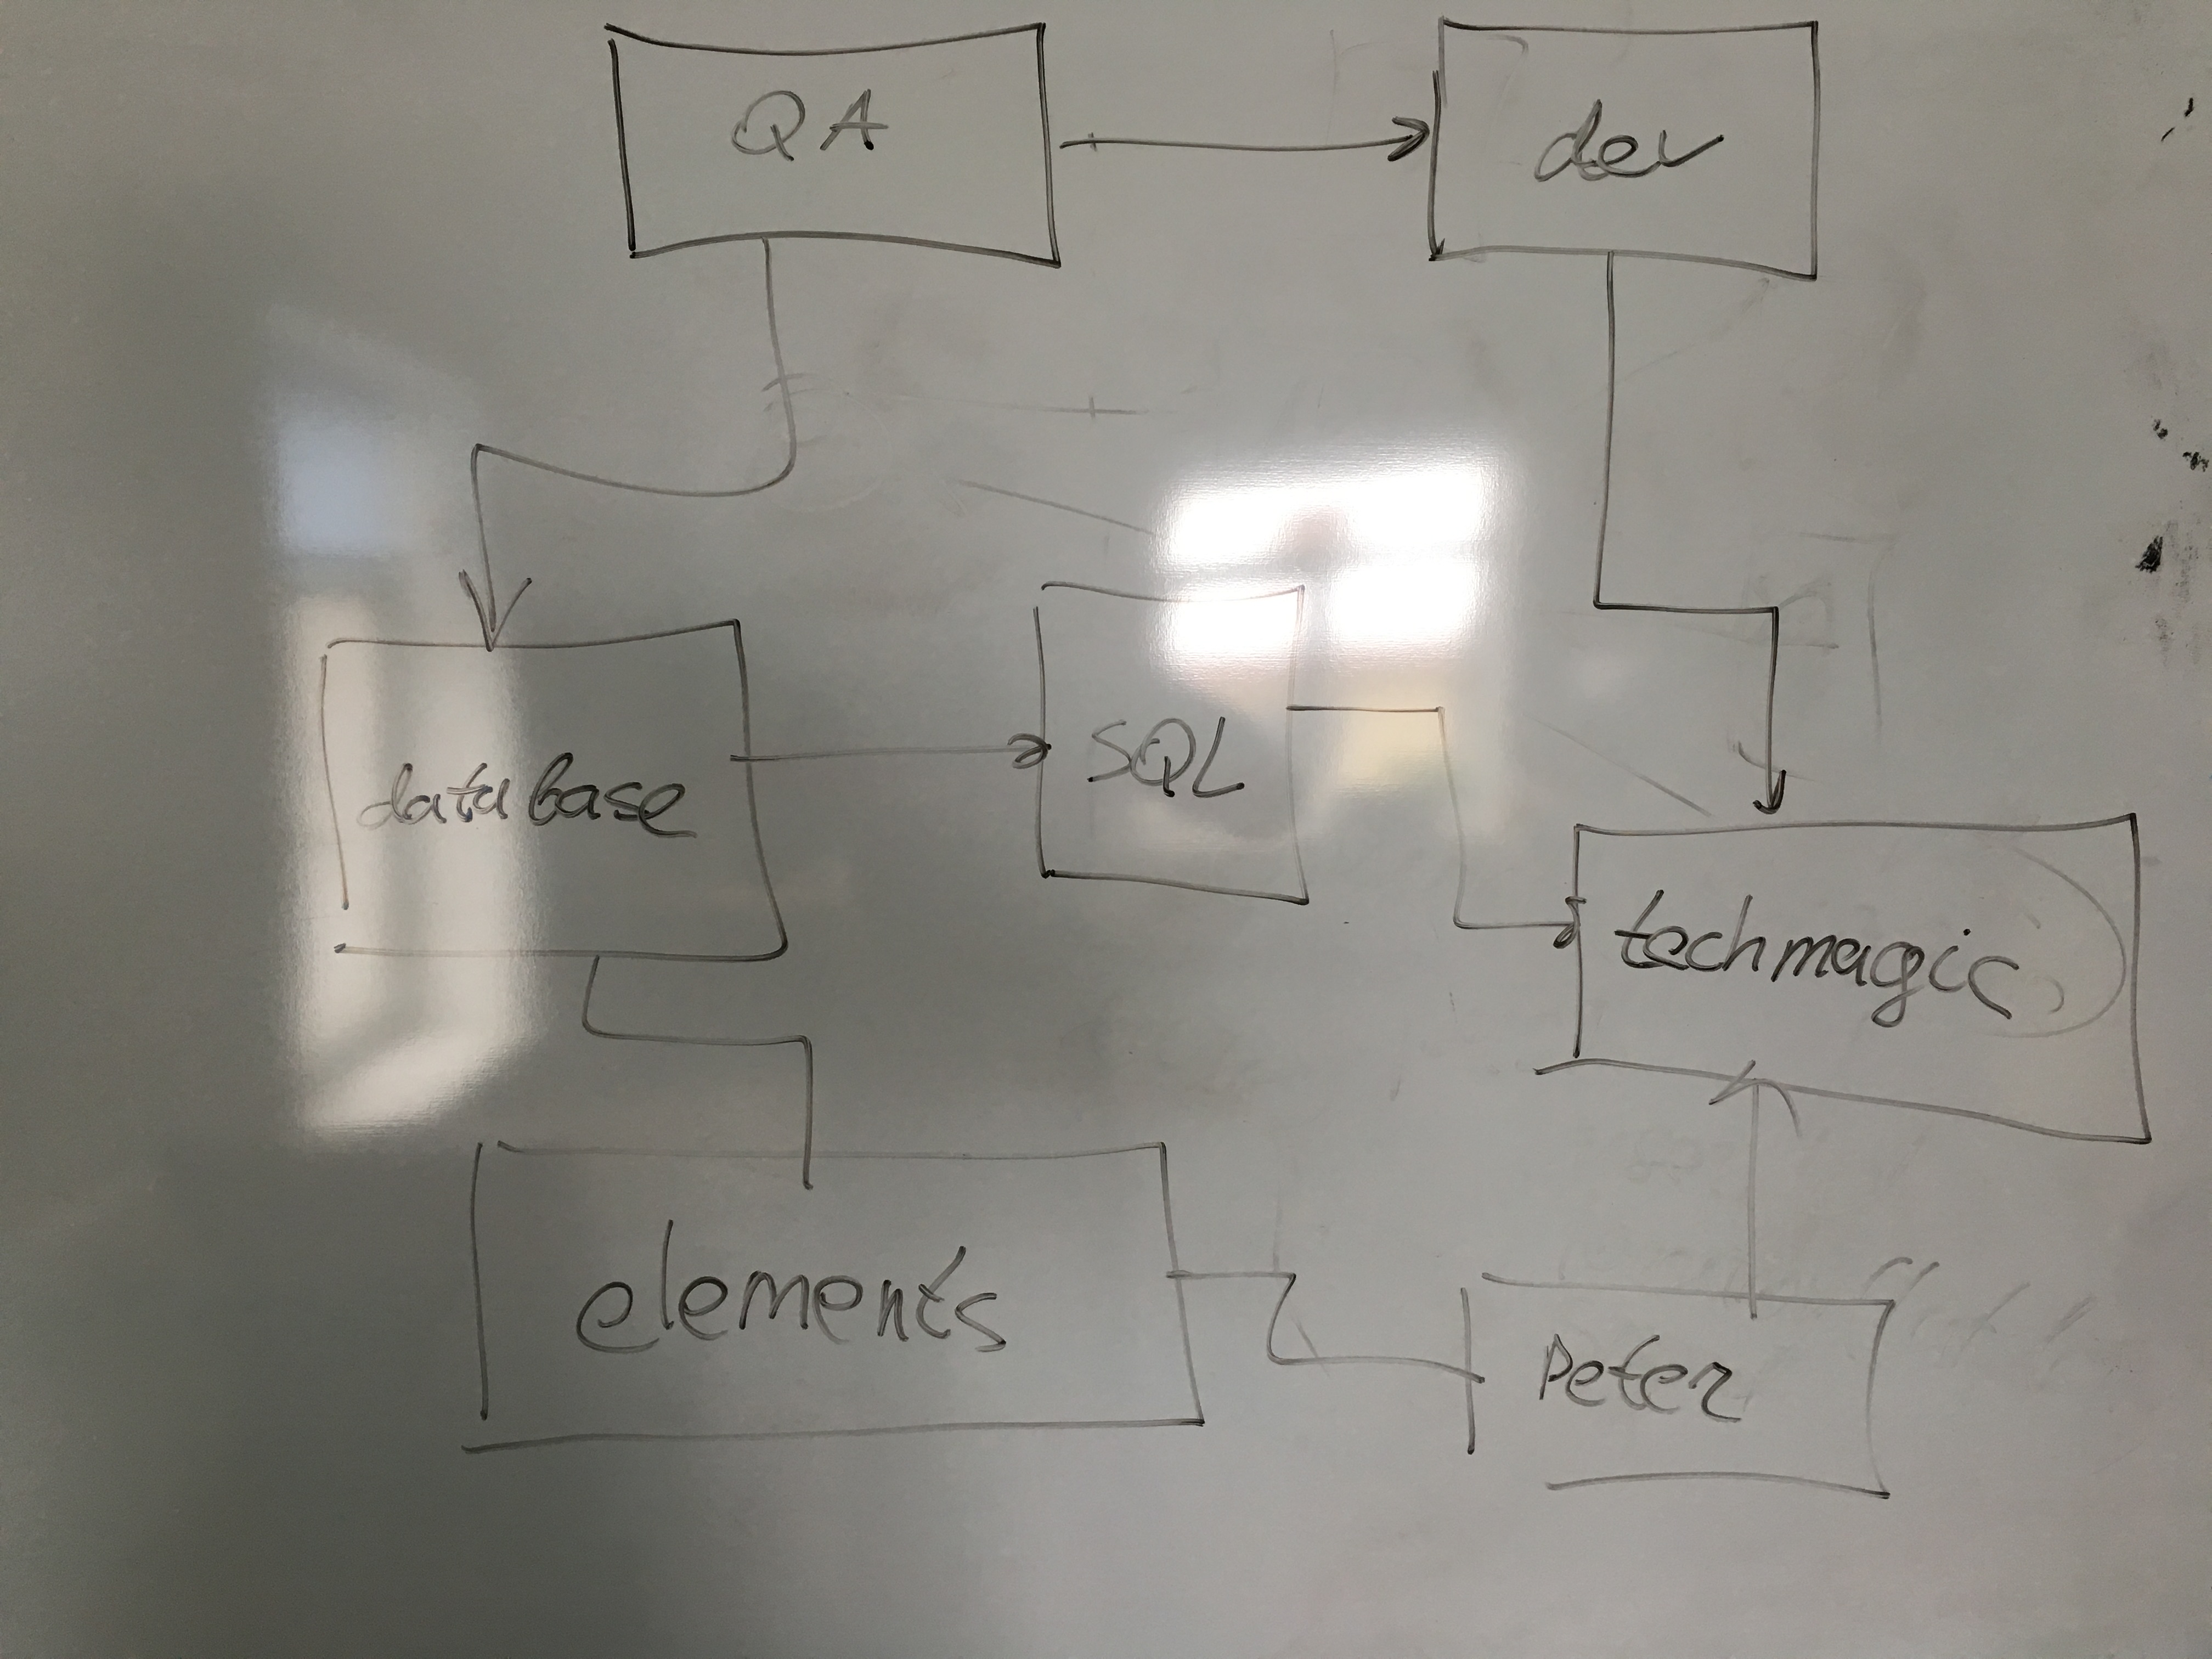 QA
dev
database
SQL
techmagic
elements
Peter